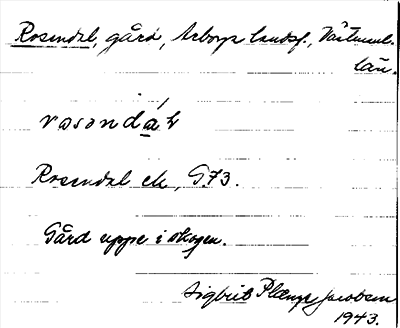 Rosendal, gård, Arboga landsf., Västmanl.
län.
rosəndál
Rosendal ek, G73.
Gård uppe i skogen.
Sigbrit Plænge Jacobson
1943.